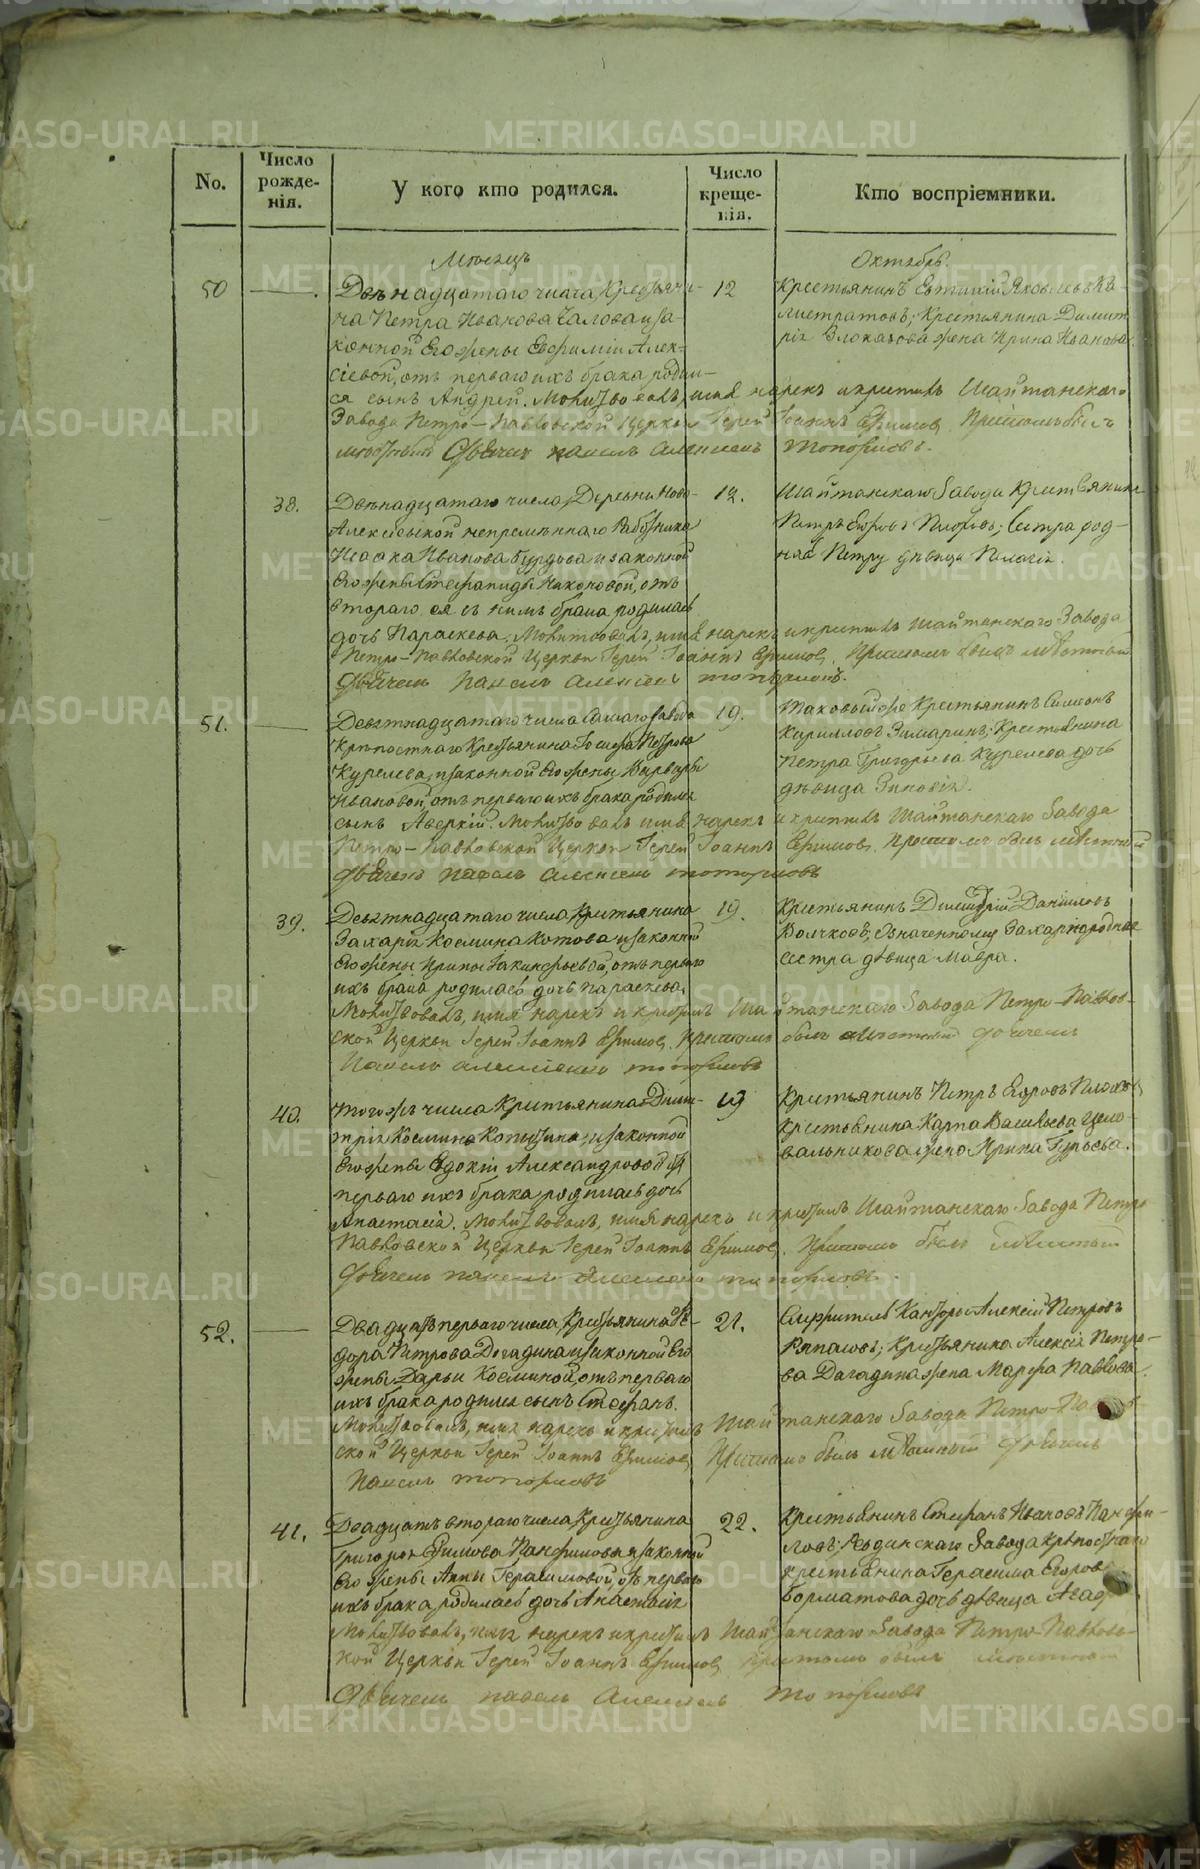 METRIKI.GASO-URAL.RU
No.
Число рожде-нія.
У кого кто родился.
Число креще-нія.
Кто воспріемники.
Мѣсяцъ
Октябрь.
50
Двѣнадцатаго числа, Крестьяни-
на Петра Иванова Чалова и за-
конной Его жены Евфиміи Алек-
сіевой, отъ перваго ихъ брака родил-
ся сынъ Андрей. Молитвовалъ, имя нарекъ и крестилъ Шайтанскаго
Завода Петро-Павловской Церкви Іерей Іоаннъ Ефимовъ. Притомъ былъ
мѣстный Дьячекъ Павелъ Алексіевъ Топорковъ.
12
Крестьянинъ Евтихій Яковлевъ Ка-
листратовъ; Крестьянина Димит-
рія Злоказова жена Ирина Иванова.
38.
Двѣнадцатаго числа, Деревни Ново-
Алексѣевской непремѣннаго Работника
Исаака Иванова Бурдова и законной
Его жены Степаниды Никоновой, отъ
втораго ея съ нимъ брака родилась
дочь Параскева. Молитвовалъ, имя нарекъ и крестилъ Шайтанскаго Завода
Петро-Павловской Церкви Іерей Іоаннъ Ефимовъ. Притомъ былъ мѣстный
Дьячекъ Павелъ Алексіевъ Топорковъ.
12.
Шайтанскаго Завода Крестьянинъ
Петръ Егоровъ; Сестра род-
ная Петру дѣвица Пелагія.
51.
Девятнадцатаго числа Сего Завода
Крѣпостнаго Крестьянина Іосифа Петрова
Курелева, и законной Его жены Варвары
Ивановой, отъ перваго ихъ брака родился
сынъ Аверкій. Молитвовалъ имя нарекъ и крестилъ Шайтанскаго Завода
Петро-Павловской Церкви Іерей Іоаннъ Ефимовъ. Притомъ былъ мѣстный
Дьячекъ Павелъ Алексіевъ Топорковъ
19.
Таковый же Крестьянинъ Симеонъ
Кирилловъ Зимаринъ; Крестьянина
Петра Григорьева Курелева дочь
дѣвица Зиновія.
39.
Девятнадцатаго числа, Крестьянина
Захарія Космина Котова и законной
Его жены Ирины Іакинфьевой, отъ перваго
ихъ брака родилась дочь Параскева.
Молитвовалъ, имя нарекъ и крестилъ Шайтанскаго Завода Петро-Павлов-
ской Церкви Іерей Іоаннъ Ефимовъ. Притомъ былъ мѣстный Дьячекъ
Павелъ Алексіевъ Топорковъ
19.
Крестьянинъ Димитрій Даниловъ
Волчковъ; Означенному Захарію родная
сестра дѣвица Мавра.
40.
Того жъ числа Крестьянина Дими-
трія Космина и законной
Его жены Евдокіи Александровой отъ
перваго ихъ брака родилась дочь
Анастасія. Молитвовалъ, имя нарекъ и крестилъ Шайтанскаго Завода Петро
Павловской Церкви Іерей Іоаннъ Ефимовъ. Притомъ былъ мѣстный
Дьячекъ Павелъ Алексіевъ Топорковъ.
19
Крестьянинъ Петръ Егоровъ
Крестьянина Карпа Васильева Цело-
вальникова жена Ирина Гурьева.
52.
Двадцать перваго числа, Крестьянина Ѳе-
дора Петрова Догадина и законной Его
жены Дарьи Косминой, отъ перваго
ихъ брака родился сынъ Стефанъ.
Молитвовалъ, имя нарекъ и крестилъ Шайтанскаго Завода Петро-Павлов-
ской Церкви Іерей Іоаннъ Ефимовъ Притомъ былъ мѣстный Дьячекъ
Павелъ Топорковъ
21.
Конторы Алексій Петровъ
Крестьянина Алексія Петро-
ва Догадина жена Марфа Павлова.
41.
Двадцать втораго числа, Крестьянина
Григорья Ефимова Панфилова и законной
Его жены Анны Герасимовой, отъ перваго
ихъ брака родилась дочь Анастасія
Молитвовалъ, имя нарекъ и крестилъ Шайтанскаго Завода Петро-Павловс-
кой Церкви Іерей Іоаннъ Ефимовъ Притомъ былъ мѣстный
Дьячекъ Павелъ Алексіевъ Топорковъ
22.
Крестьянинъ Стефанъ Ивановъ Панфи-
ловъ; Ревдинскаго Завода крѣпостнаго
крестьянина Герасима Егорова
дочь дѣвица